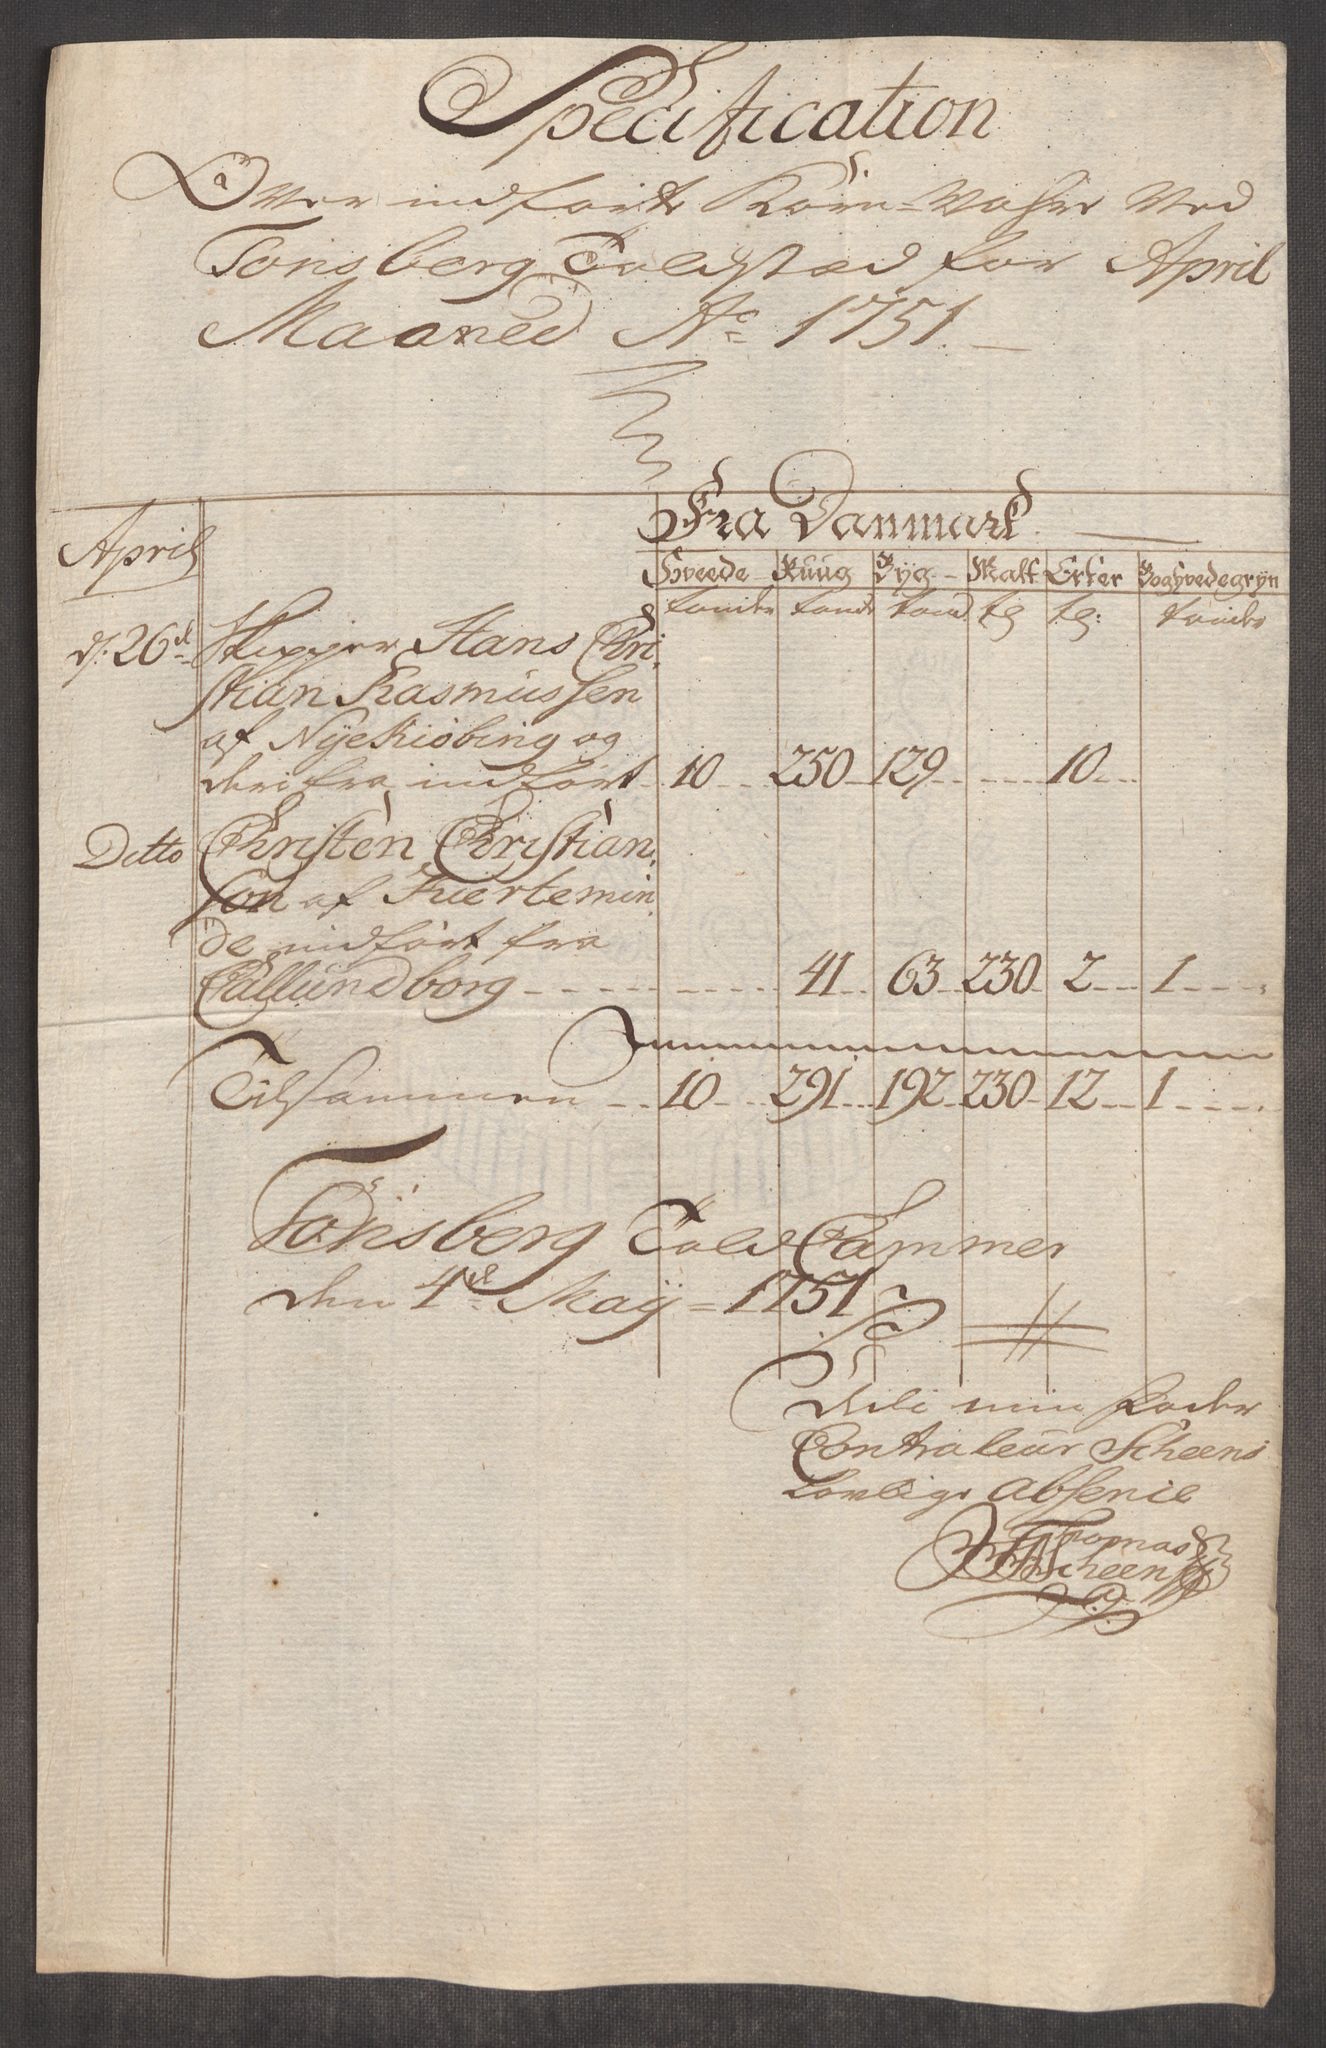 Specification
Over indførte Korn-Vahre Ved
Tonsberg Toldstæd for April
Maaned Ao 1751
Fra Danmark
April
Hveede Ruug Byg Malt Erter Boghvedegryn
tønder tønde tønd tø tø: tønder
d: 26de Skipper Hans Chri
stian Rasmussen
af Nyekiøbing og
derifra indført 10 250 129 10
Ditto Christen Christian
son af Kiertemin
de indført fra
Callundborg 41 63 230 2 1
Tilsammen 10 291 192 230 12 1
Tönsberg Told Cammer
den 4de Maij 1751
udi min Fader
Contraleur Scheens
Lovlige Absence
Thomas
Scheen